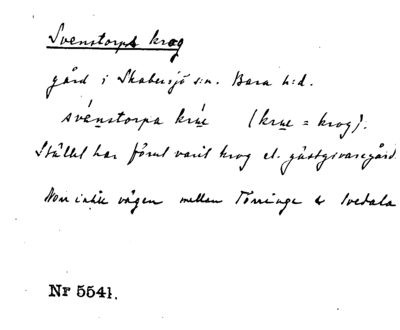 Svenstorps krog
gård i Skabersjö s:n. Bara h:d.
svénstorpa krúe (krue = krog).
Stället har förut varit krog el. gästgivaregård.
vägen mellan Törringe & Svedala
Nr 5541.